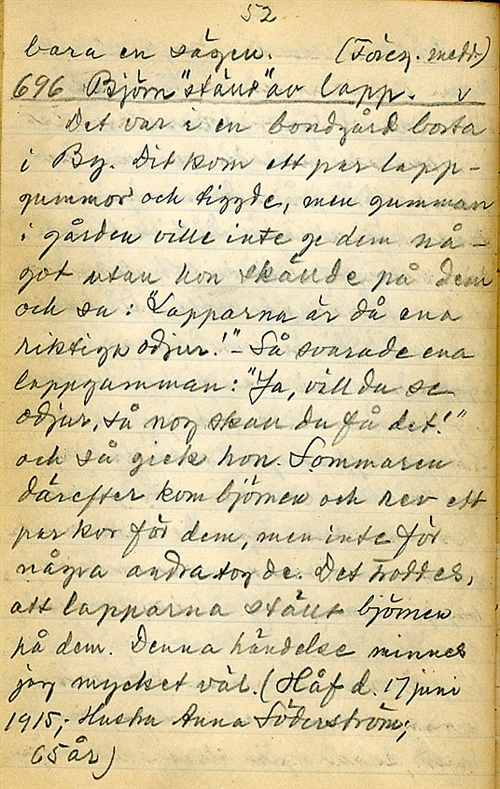 52
bara en sägen. (Föreg. medd.)
696 Björn "stäud" av lapp. v
Det var i en bondgård borta
i By. Dit kom ett par lapp-
gummor och tiggde, men gumman
i gården ville inte ge dem nå-
got utan hon skände på dem
och sa: "Lapparna är då ena
riktiga odjur!" - Så svarade ena
lappgumman: "Ja, vill du se
odjur, så nog skau du få det!"
och så gick hon. Sommaren
därefter kom björnen och rev ett
par kor för dem, men inte för
några andra tog de. Det troddes,
att lapparna stäut björnen
på dem. Denna händelse minnes
jag mycket väl. (Håf d. 17 juni
1915; Hustru Anna Söderström;
65 år)